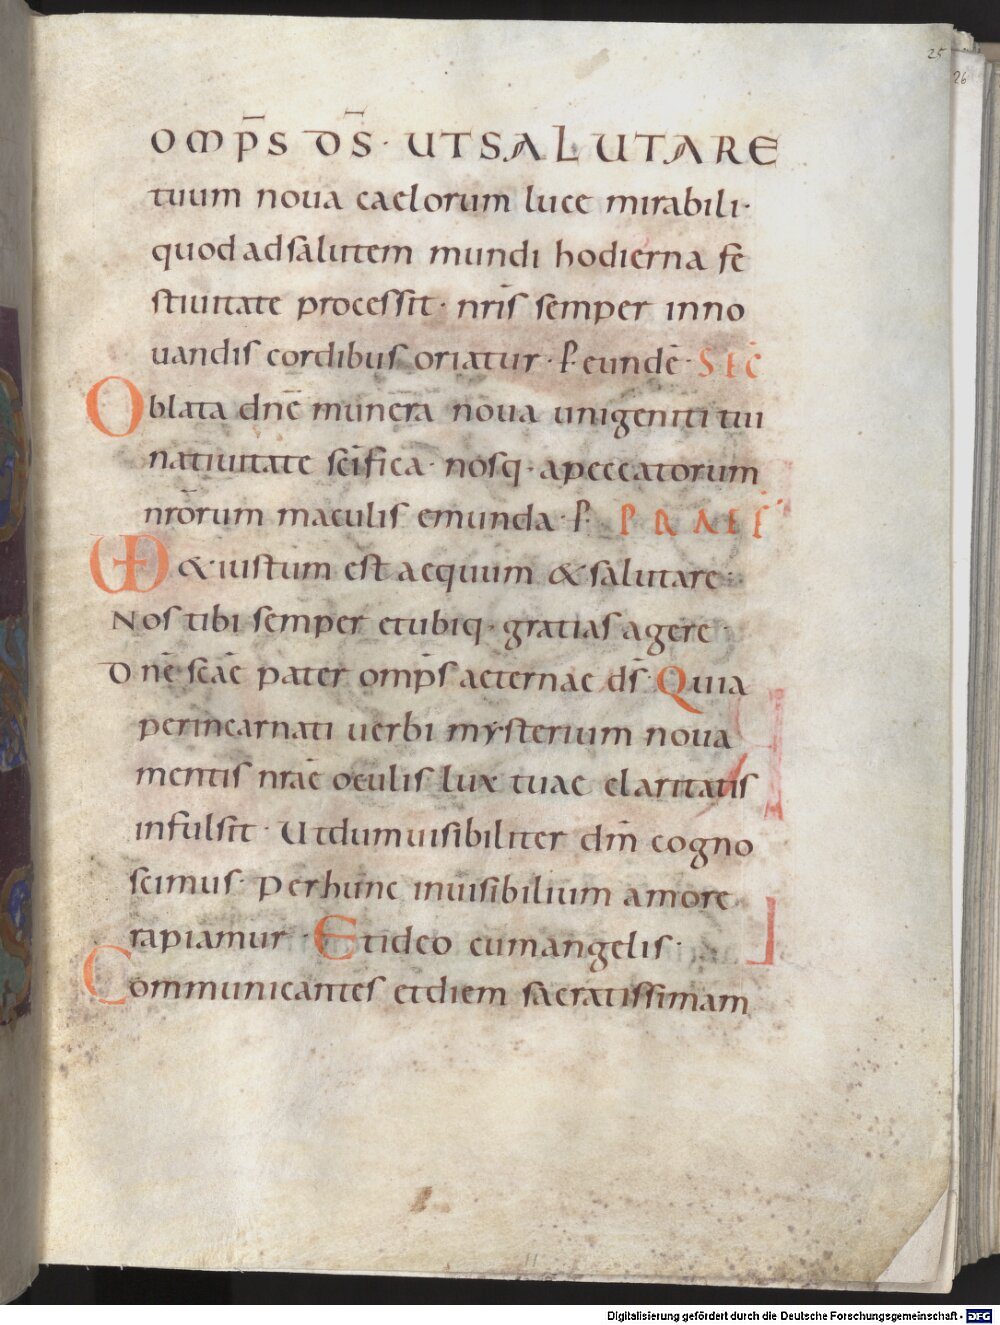 25
26
omp̄s d̄s · UT SALUTARE
tuum noua caelorum luce mirabili·
quod adsalutem mundi hodierna fe
stiuitate processit · nr̄is semper inno
uandis cordibus oriatur · P eundē · SEC̄
Oblata dnē munera noua unigeniti tui
natiuitate sc̄ifica · nosq· apeccatorum
nr̄orum maculis emunda · P PRAEF̄
UD &iustum est aequum &salutare ·
Nos tibi semper etubiq· gratias agere
Dnē scāe pater omp̄s aeternae ds̄ Quia
perincarnati uerbi mysterium noua
mentis nrāe oculis lux tuae claritatis
infulsit · Utdumuisibiliter dm̄ cogno
scimus · perhunc inuisibilium amore
rapiamur · Etideo cumangelis ·
Communicantes etdiem sacratissimam
Digitalisierung gefördert durch die Deutsche Forschungsgemeinschaft - DFG